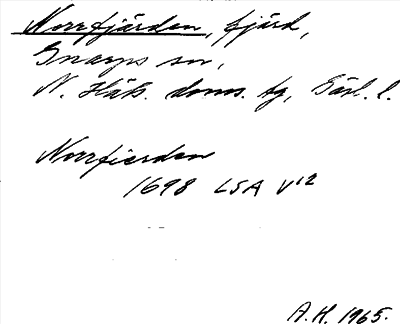 Norrfjärden, fjärd,
Gnarps sn,
N. Häls. doms. tg, Gävl. l.
Norrfierden
1698 LSA V12
A.H. 1965.